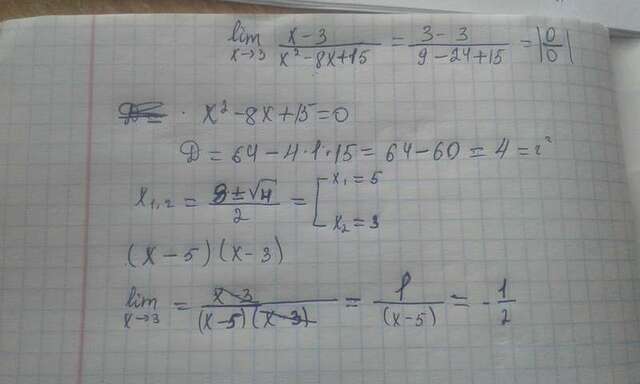 lim x→3 (x-3)/(x²-8x+15) = (3-3)/(9-24+15) = |0/0|
x²-8x+15=0
D=64-4·1·15=64-60=4=2²
x₁,₂ = (8±√4)/2 = [x₁=5
x₂=3
(x-5)(x-3)
lim x→3 = (x-3)/((x-5)(x-3)) = 1/(x-5) = -1/2